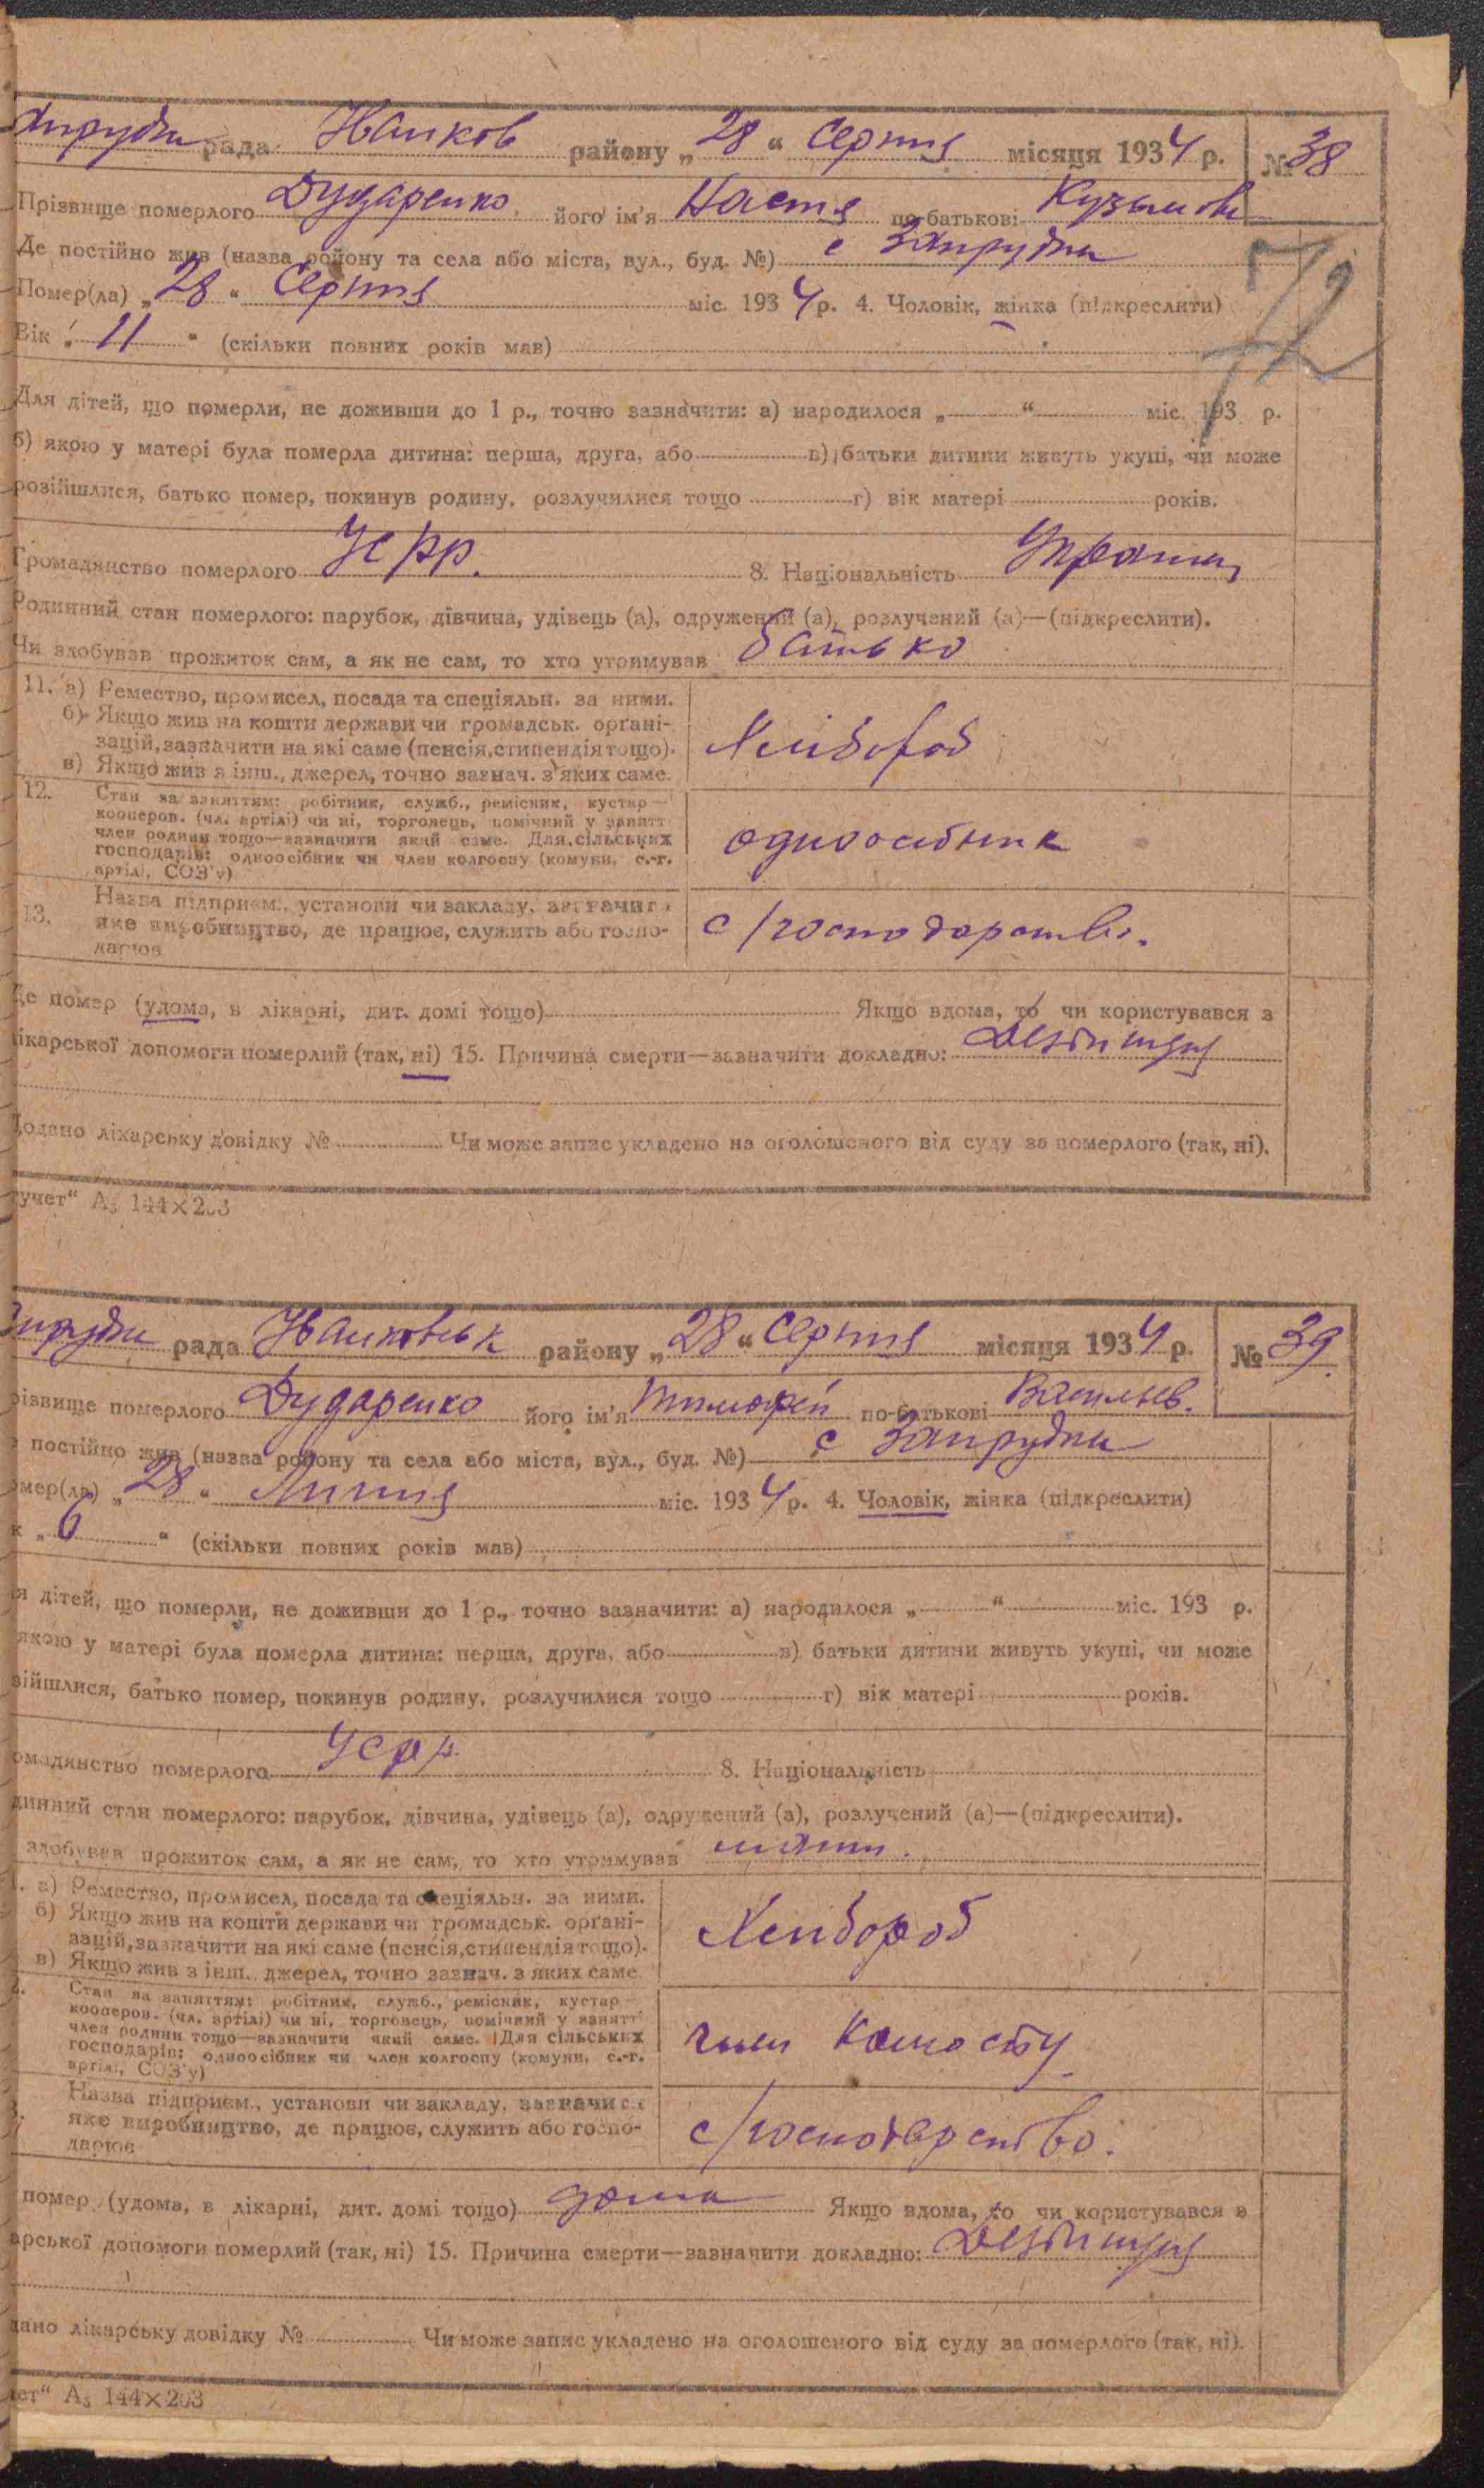 рада Іванков району „28“ Серпня місяця 1934 р. № 38
Прізвище померлого Дударенко його ім'я Настя по-батькові Кузьмов
Де постійно жив (назва району та села або міста, вул., буд. №) с Запрудки
72
Помер(ла) „28“ Серпня міс. 1934 р. 4. Чоловік, жінка (підкреслити)
Вік „11“ (скільки повних років мав)
Для дітей, що померли, не доживши до 1 р., точно зазначити: а) народилося „ “ міс. 193 р.
б) якою у матері була померла дитина: перша, друга, або в) батьки дитини живуть укупі, чи може
розійшлися, батько помер, покинув родину, розлучилися тощо г) вік матері років.
Громадянство померлого УСРР. 8. Національність
Родинний стан померлого: парубок, дівчина, удівець (а), одружений (а), розлучений (а)—(підкреслити).
Чи здобував прожиток сам, а як не сам, то хто утримував батько
11. а) Ремество, промисел, посада та спеціяльн. за ними.
б) Якщо жив на кошти держави чи громадськ. органі-
зацій, зазначити на які саме (пенсія, стипендія тощо).
в) Якщо жив з інш., джерел, точно зазнач. з яких саме.
Хлібороб
12. Стан за заняттям: робітник, служб., ремісник, кустар—
кооперов. (чл. артілі) чи ні, торговець, помічний у занятт
член родини тощо—зазначити який саме. Для сільських
господарів: одноосібник чи член колгоспу (комуни, с.-г.
артілі, СОЗ'у)
одноосібник
13. Назва підприєм., установи чи закладу, зазначит
яке виробництво, де працює, служить або госпо-
дарює
с/господарство.
Де помер (удома, в лікарні, дит. домі тощо) Якщо вдома, то чи користувався з
лікарської допомоги померлий (так, ні) 15. Причина смерти—зазначити докладно:
Додано лікарську довідку № Чи може запис укладено на оголошеного від суду за померлого (так, ні).
учет“ А₅ 144×203
рада Іванковськ району „28“ Серпня місяця 1934 р. № 39.
різвище померлого Дударенко його ім'я Тимофей по-батькові Васильев.
постійно жив (назва району та села або міста, вул., буд. №) с Запрудки
омер(ла) „28“ Липня міс. 1934 р. 4. Чоловік, жінка (підкреслити)
к „6“ (скільки повних років мав)
ля дітей, що померли, не доживши до 1 р., точно зазначити: а) народилося „ “ міс. 193 р.
якою у матері була померла дитина: перша, друга, або в) батьки дитини живуть укупі, чи може
зійшлися, батько помер, покинув родину, розлучилися тощо г) вік матері років.
омадянство померлого УСРР 8. Національність
динний стан померлого: парубок, дівчина, удівець (а), одружений (а), розлучений (а)—(підкреслити).
здобував прожиток сам, а як не сам, то хто утримував мати.
. а) Ремество, промисел, посада та спеціяльн. за ними.
б) Якщо жив на кошти держави чи громадськ. органі-
зацій, зазначити на які саме (пенсія, стипендія тощо).
в) Якщо жив з інш. джерел, точно зазнач. з яких саме.
Хлібороб
Стан за заняттям: робітник, служб., ремісник, кустар—
кооперов. (чл. артілі) чи ні, торговець, помічний у занятт
член родини тощо—зазначити який саме. Для сільських
господарів: одноосібник чи член колгоспу (комуни, с.-г.
артілі, СОЗ'у)
член
Назва підприєм., установи чи закладу, зазначит
яке виробництво, де працює, служить або госпо-
дарює
с/господарство.
помер (удома, в лікарні, дит. домі тощо) дома Якщо вдома, то чи користувався з
арської допомоги померлий (так, ні) 15. Причина смерти—зазначити докладно:
дано лікарську довідку № Чи може запис укладено на оголошеного від суду за померлого (так, ні).
ет“ А₅ 144×203